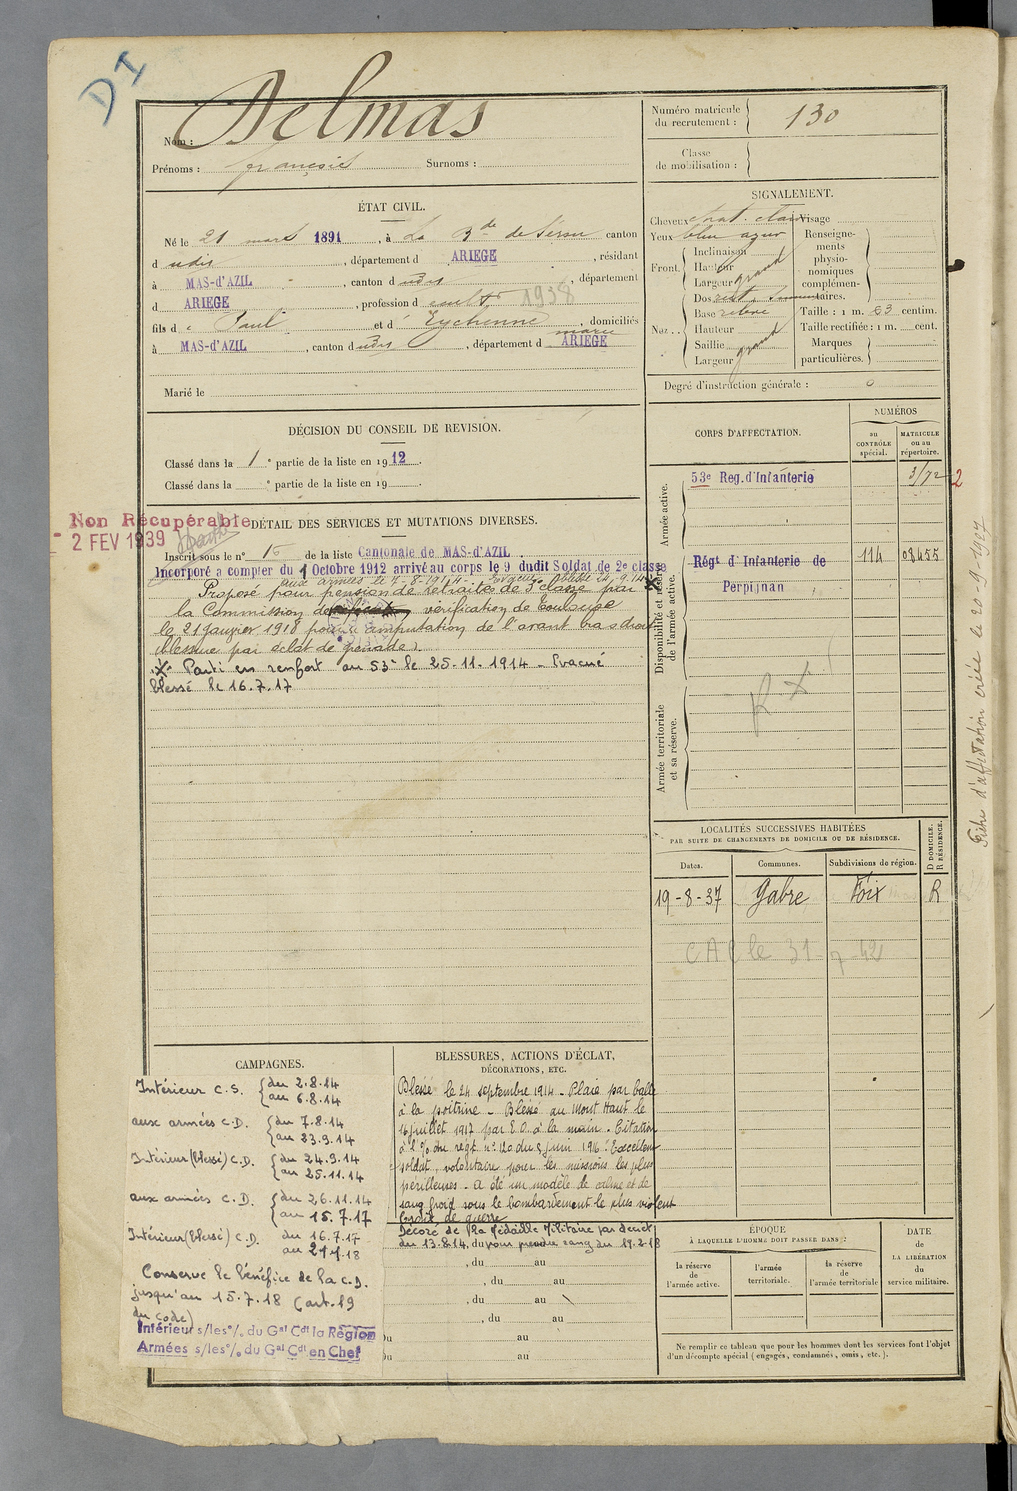 DI
Nom : Delmas
Prénoms : françois Surnoms :
Numéro matricule du recrutement : 130
Classe de mobilisation :
ÉTAT CIVIL.
Né le 21 mars 1891, à La Bde de Séron canton
d udis, département d ARIEGE, résidant
à MAS-d'AZIL, canton d udis, département
d ARIEGE, profession d cultr 1938
fils d e Paul et d' Eychenne marie, domiciliés
à MAS-d'AZIL, canton d udis, département d ARIEGE
Marié le
SIGNALEMENT.
Cheveux chat. clair Visage
Yeux bleu azur
Renseignements physionomiques complémentaires.
Front. Inclinaison
Hauteur
Largeur grand
Nez. Dos rect.
Base relevé
Hauteur
Saillie grand
Largeur
Taille : 1 m. 63 centim.
Taille rectifiée : 1 m. cent.
Marques particulières.
Degré d'instruction générale : 0
DÉCISION DU CONSEIL DE REVISION.
Classé dans la 1 e partie de la liste en 1912.
Classé dans la e partie de la liste en 19 .
Non Récupérable
2 FEV 1939
DÉTAIL DES SERVICES ET MUTATIONS DIVERSES.
Inscrit sous le n° 15 de la liste Cantonale de MAS-d'AZIL.
Incorporé a compter du 1 Octobre 1912 arrivé au corps le 9 dudit Soldat de 2e classe
aux armées le 7-8-1914. Evacué blessé 24.9.14 X
Proposé pour pension de retraite de 5e classe par
la Commission de vérification de Toulouse
le 21 Janvier 1918 pour amputation de l'avant bras droit
(blessure par éclat de grenade).
X Parti en renfort au 53e le 25.11.1914 - Evacué
blessé le 16.7.17
CORPS D'AFFECTATION.
NUMÉROS
au CONTRÔLE spécial.
MATRICULE ou au répertoire.
Armée active.
53e Reg. d'Infanterie 3172 2
Disponibilité et réserve de l'armée active.
Régt d'Infanterie de Perpignan 114 08455
Armée territoriale et sa réserve.
R X
Fiche d'affectation créée le 20-9-1927
LOCALITÉS SUCCESSIVES HABITÉES
PAR SUITE DE CHANGEMENTS DE DOMICILE OU DE RÉSIDENCE.
Dates. Communes. Subdivisions de région. D DOMICILE. R RÉSIDENCE.
19-8-37 Gabre Foix R
CAC le 31-7-42
CAMPAGNES.
Intérieur C.S. du 2.8.14
au 6.8.14
aux armées C.D. du 7.8.14
au 23.9.14
Intérieur (blessé) C.D. du 24.9.14
au 25.11.14
aux armées C.D. du 26.11.14
au 15.7.17
Intérieur (blessé) C.D. du 16.7.17
au 21.1.18
Conserve le bénéfice de la C.D.
jusqu'au 15.7.18 (art. 19
du code)
Intérieur s/les°/₀ du Gal Cdt la Région
Armées s/les°/₀ du Gal Cdt en Chef
BLESSURES, ACTIONS D'ÉCLAT,
DÉCORATIONS, ETC.
Blessé le 24 septembre 1914 - Plaie par balle
à la poitrine - Blessé au Mont Haut le
16 juillet 1917 par E.O. à la main. Citation
à l'O/ du régt n° 120 du 8 juin 1916. "Excellent
soldat, volontaire pour les missions les plus
périlleuses - a été un modèle de calme et de
sang froid sous le bombardement le plus violent
Croix de guerre
Décoré de la Médaille Militaire par décret
du 13.8.14, du pour prendre rang du 19.2.18
, du au
, du au
, du au
, du au
Du au
Du au
ÉPOQUE
À LAQUELLE L'HOMME DOIT PASSER DANS :
la réserve de l'armée active.
l'armée territoriale.
la réserve de l'armée territoriale
DATE de LA LIBÉRATION du service militaire.
Ne remplir ce tableau que pour les hommes dont les services font l'objet
d'un décompte spécial (engagés, condamnés, omis, etc.).